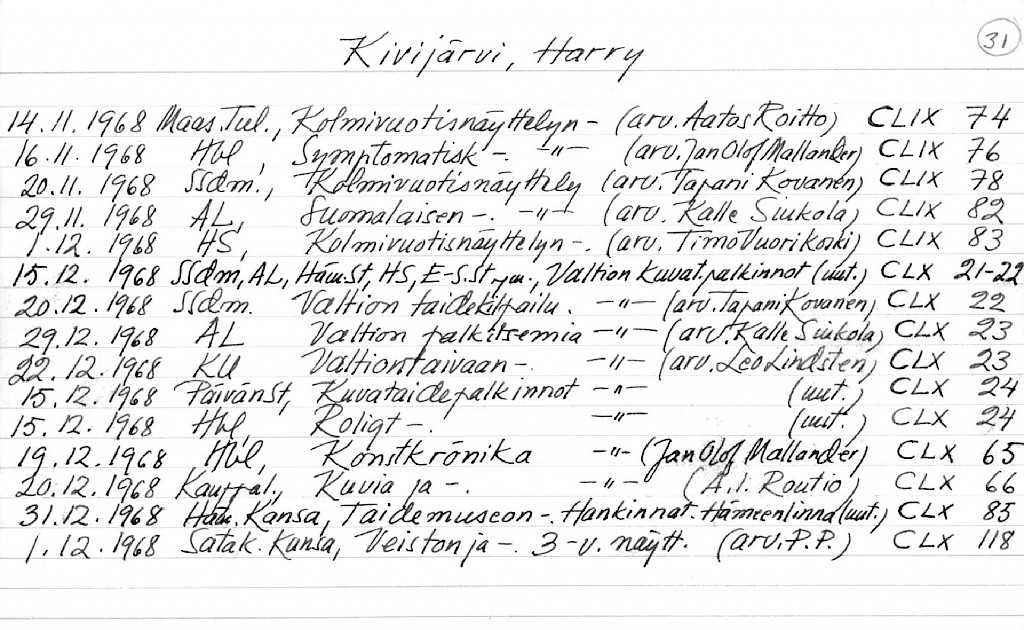 31
Kivijärvi, Harry
14.11.1968 Maas.Tul., Kolmivuotisnäyttelyn - (arv. Aatos Roitto) CLIX 74
16.11.1968 Hbl, Symptomatisk -. -"- (arv. Jan Olof Mallander) CLIX 76
20.11.1968 SSdm., Kolmivuotisnäyttely (arv. Tapani Kovanen) CLIX 78
29.11.1968 AL, Suomalaisen -. -"- (arv. Kalle Siukola) CLIX 82
1.12.1968 HS, Kolmivuotisnäyttelyn -. (arv. Timo Vuorikoski) CLIX 83
15.12.1968 SSdm, AL, Häm.St, HS, E-S.St ym., Valtion kuvat.palkinnot (uut.) CLX 21-22
20.12.1968 SSdm. Valtion taidekilpailu. -"- (arv. Tapani Kovanen) CLX 22
29.12.1968 AL Valtion palkitsemia -"- (arv. Kalle Siukola) CLX 23
22.12.1968 KU Valtiontaivaan -. -"- (arv. Leo Lindsten) CLX 23
15.12.1968 PäivänSt, Kuvataidepalkinnot -"- (uut.) CLX 24
15.12.1968 Hbl, Roligt -. -"- (uut.) CLX 24
19.12.1968 Hbl, Konstkrönika -"- (Jan Olof Mallander) CLX 65
20.12.1968 Kauppal., Kuvia ja -. -"- (A.I. Routio) CLX 66
31.12.1968 Häm. Kansa, Taidemuseon -. Hankinnat. Hämeenlinna (uut.) CLX 85
1.12.1968 Satak. Kansa, Veiston ja -. 3-v. näytt. (arv. P.P.) CLX 118